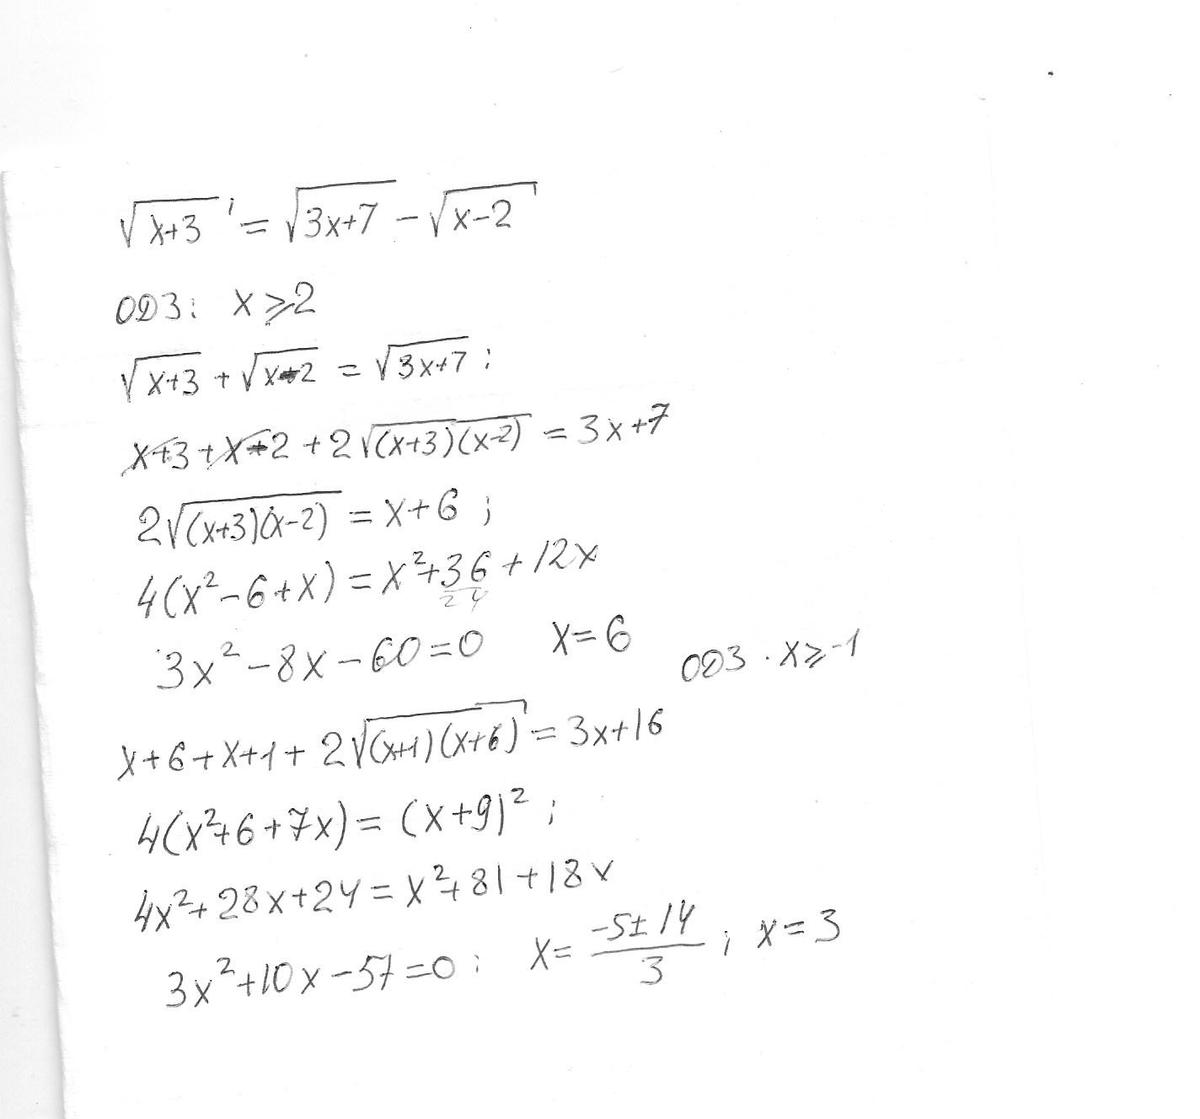 √(x+3) = √(3x+7) - √(x-2)
ОДЗ: x ⩾ 2
√(x+3) + √(x-2) = √(3x+7) ;
x+3 + x-2 + 2√((x+3)(x-2)) = 3x+7
2√((x+3)(x-2)) = x+6 ;
4(x²-6+x) = x²+36+12x
24
3x²-8x-60=0 x=6 ОДЗ. x⩾-1
x+6+x+1+ 2√((x+1)(x+6)) = 3x+16
4(x²+6+7x) = (x+9)² ;
4x²+28x+24 = x²+81+18x
3x²+10x-57=0 ; x= (-5±14)/3 ; x=3